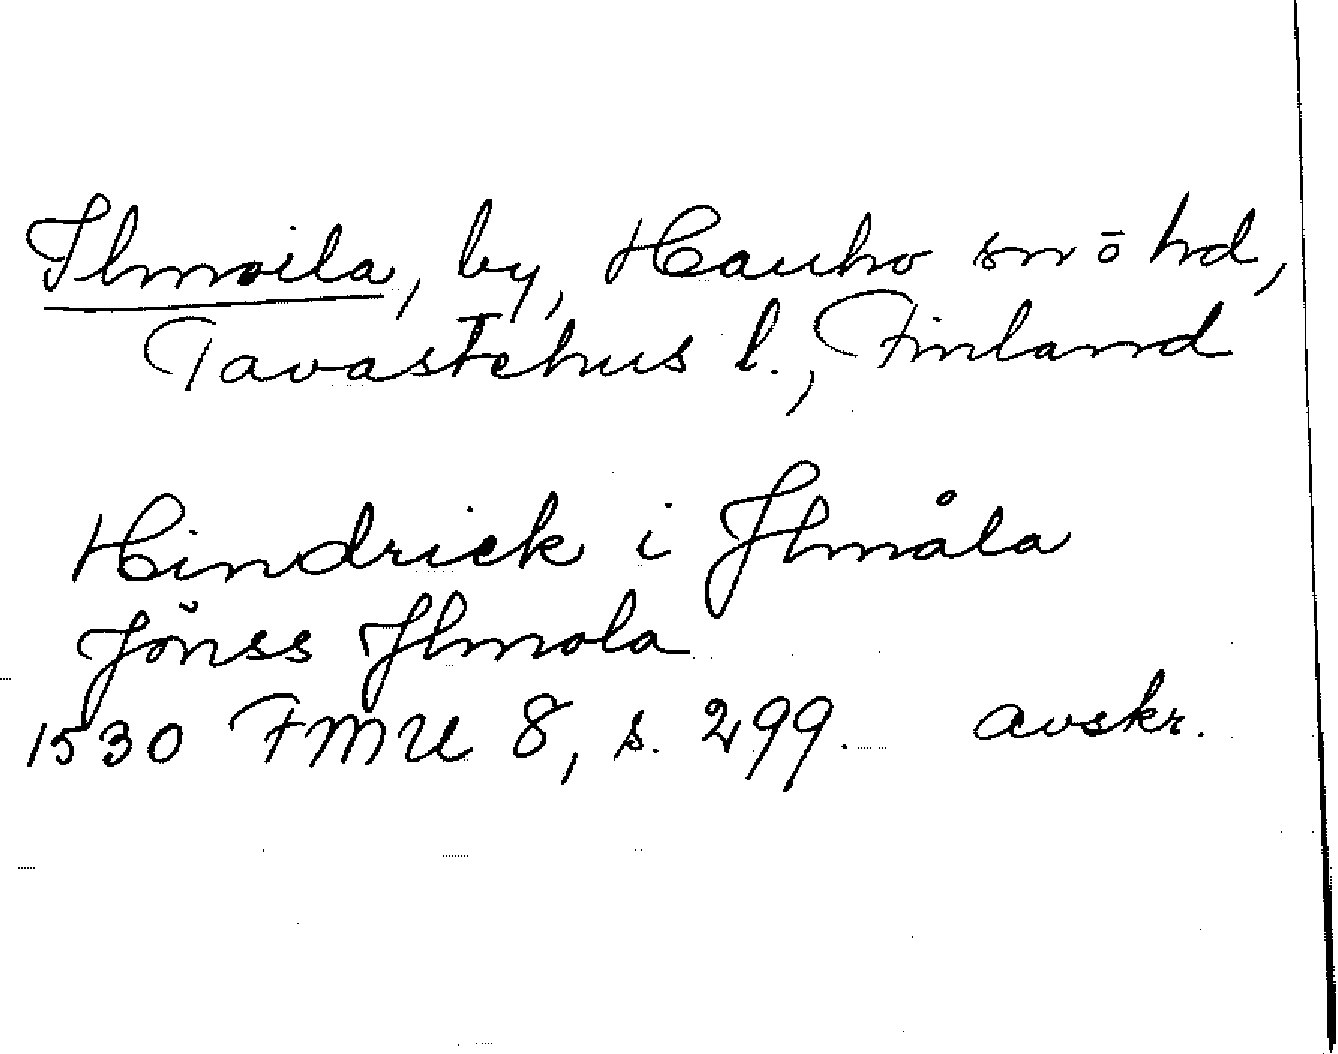 Ilmoila, by, Hauho sn o hd,
Tavastehus l., Finland
Hindrick i Jlmåla
Jönss Jlmola
1530 FMU 8, s. 299. avskr.